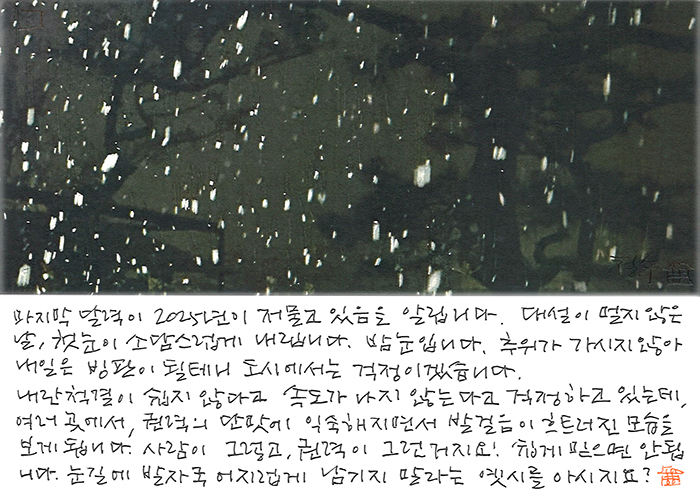 마지막 달력이 2025년이 저물고 있음을 알립니다. 대설이 멀지않은
날, 첫눈이 소담스럽게 내립니다. 밤눈입니다. 추위가 가시지않아
내일은 빙판이 될테니 도시에서는 걱정이겠습니다.
내란척결이 쉽지 않다고 속도가 나지 않는다고 걱정하고 있는데,
여러 곳에서, 권력의 단맛에 익숙해지면서 발걸음이 흐트러진 모습을
보게 됩니다. 사람이 그렇고, 권력이 그런거지요! 쉽게 믿으면 안됩
니다. 눈길에 발자국 어지럽게 남기지 말라는 옛시를 아시지요?